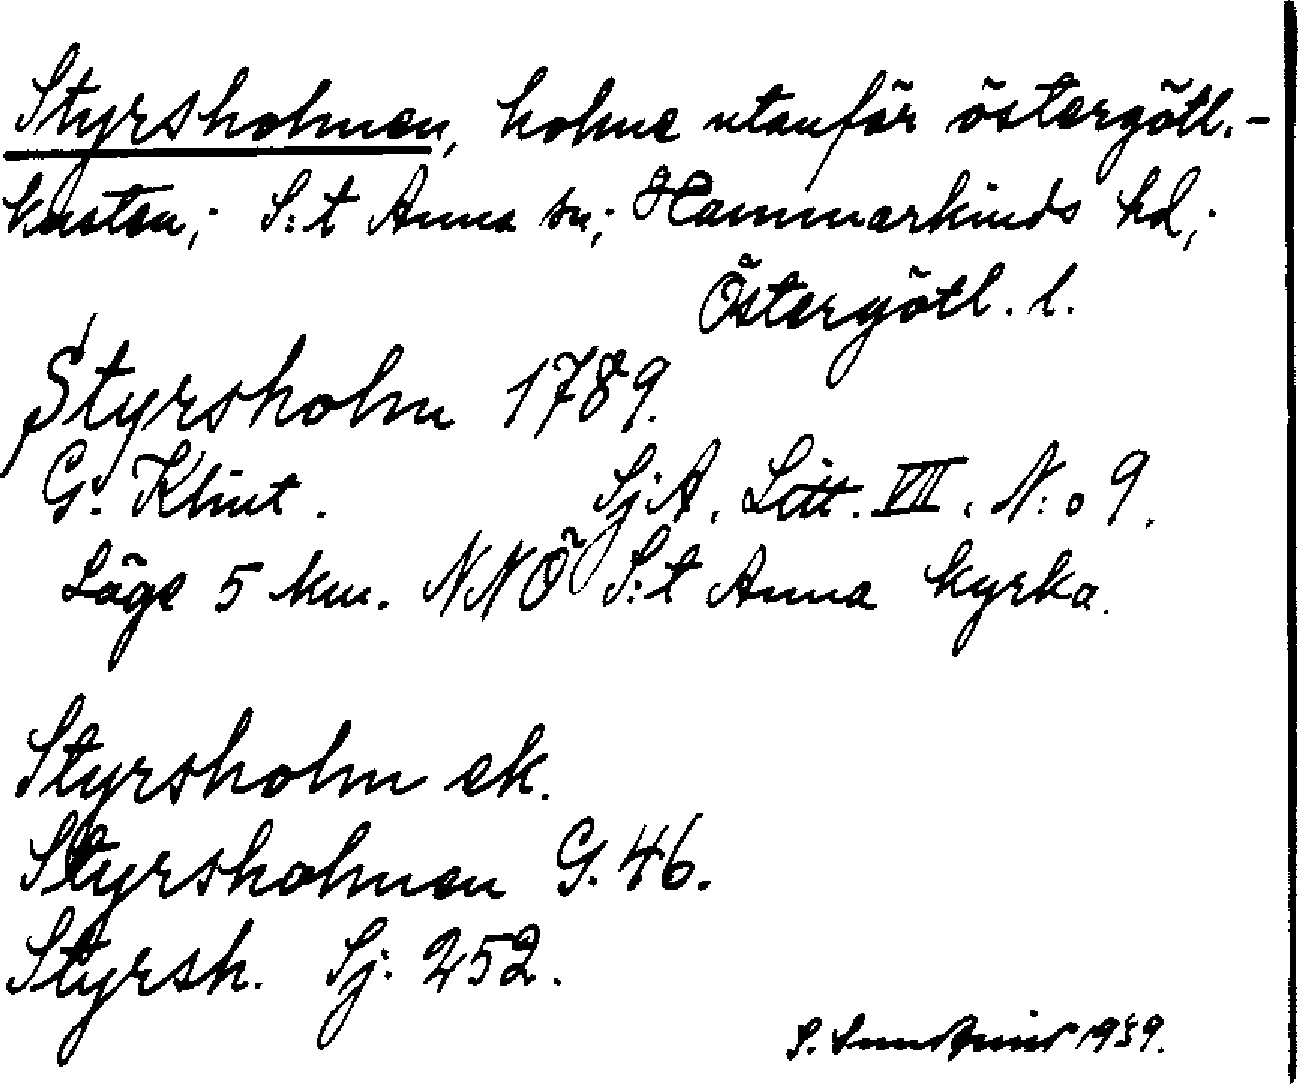 Styrsholmen, holme utanför östergötl.-
kusten; S:t Anna sn; Hammarkinds hd;
Östergötl. l.
Styrsholm 1789.
G. Klint. SjA. Litt. VII. N:o 9.
Läge 5 km. NNÖ S:t Anna kyrka.
Styrsholm ek.
Styrsholmen G. 46.
Styrsh. Sj. 252.
S. 1939.